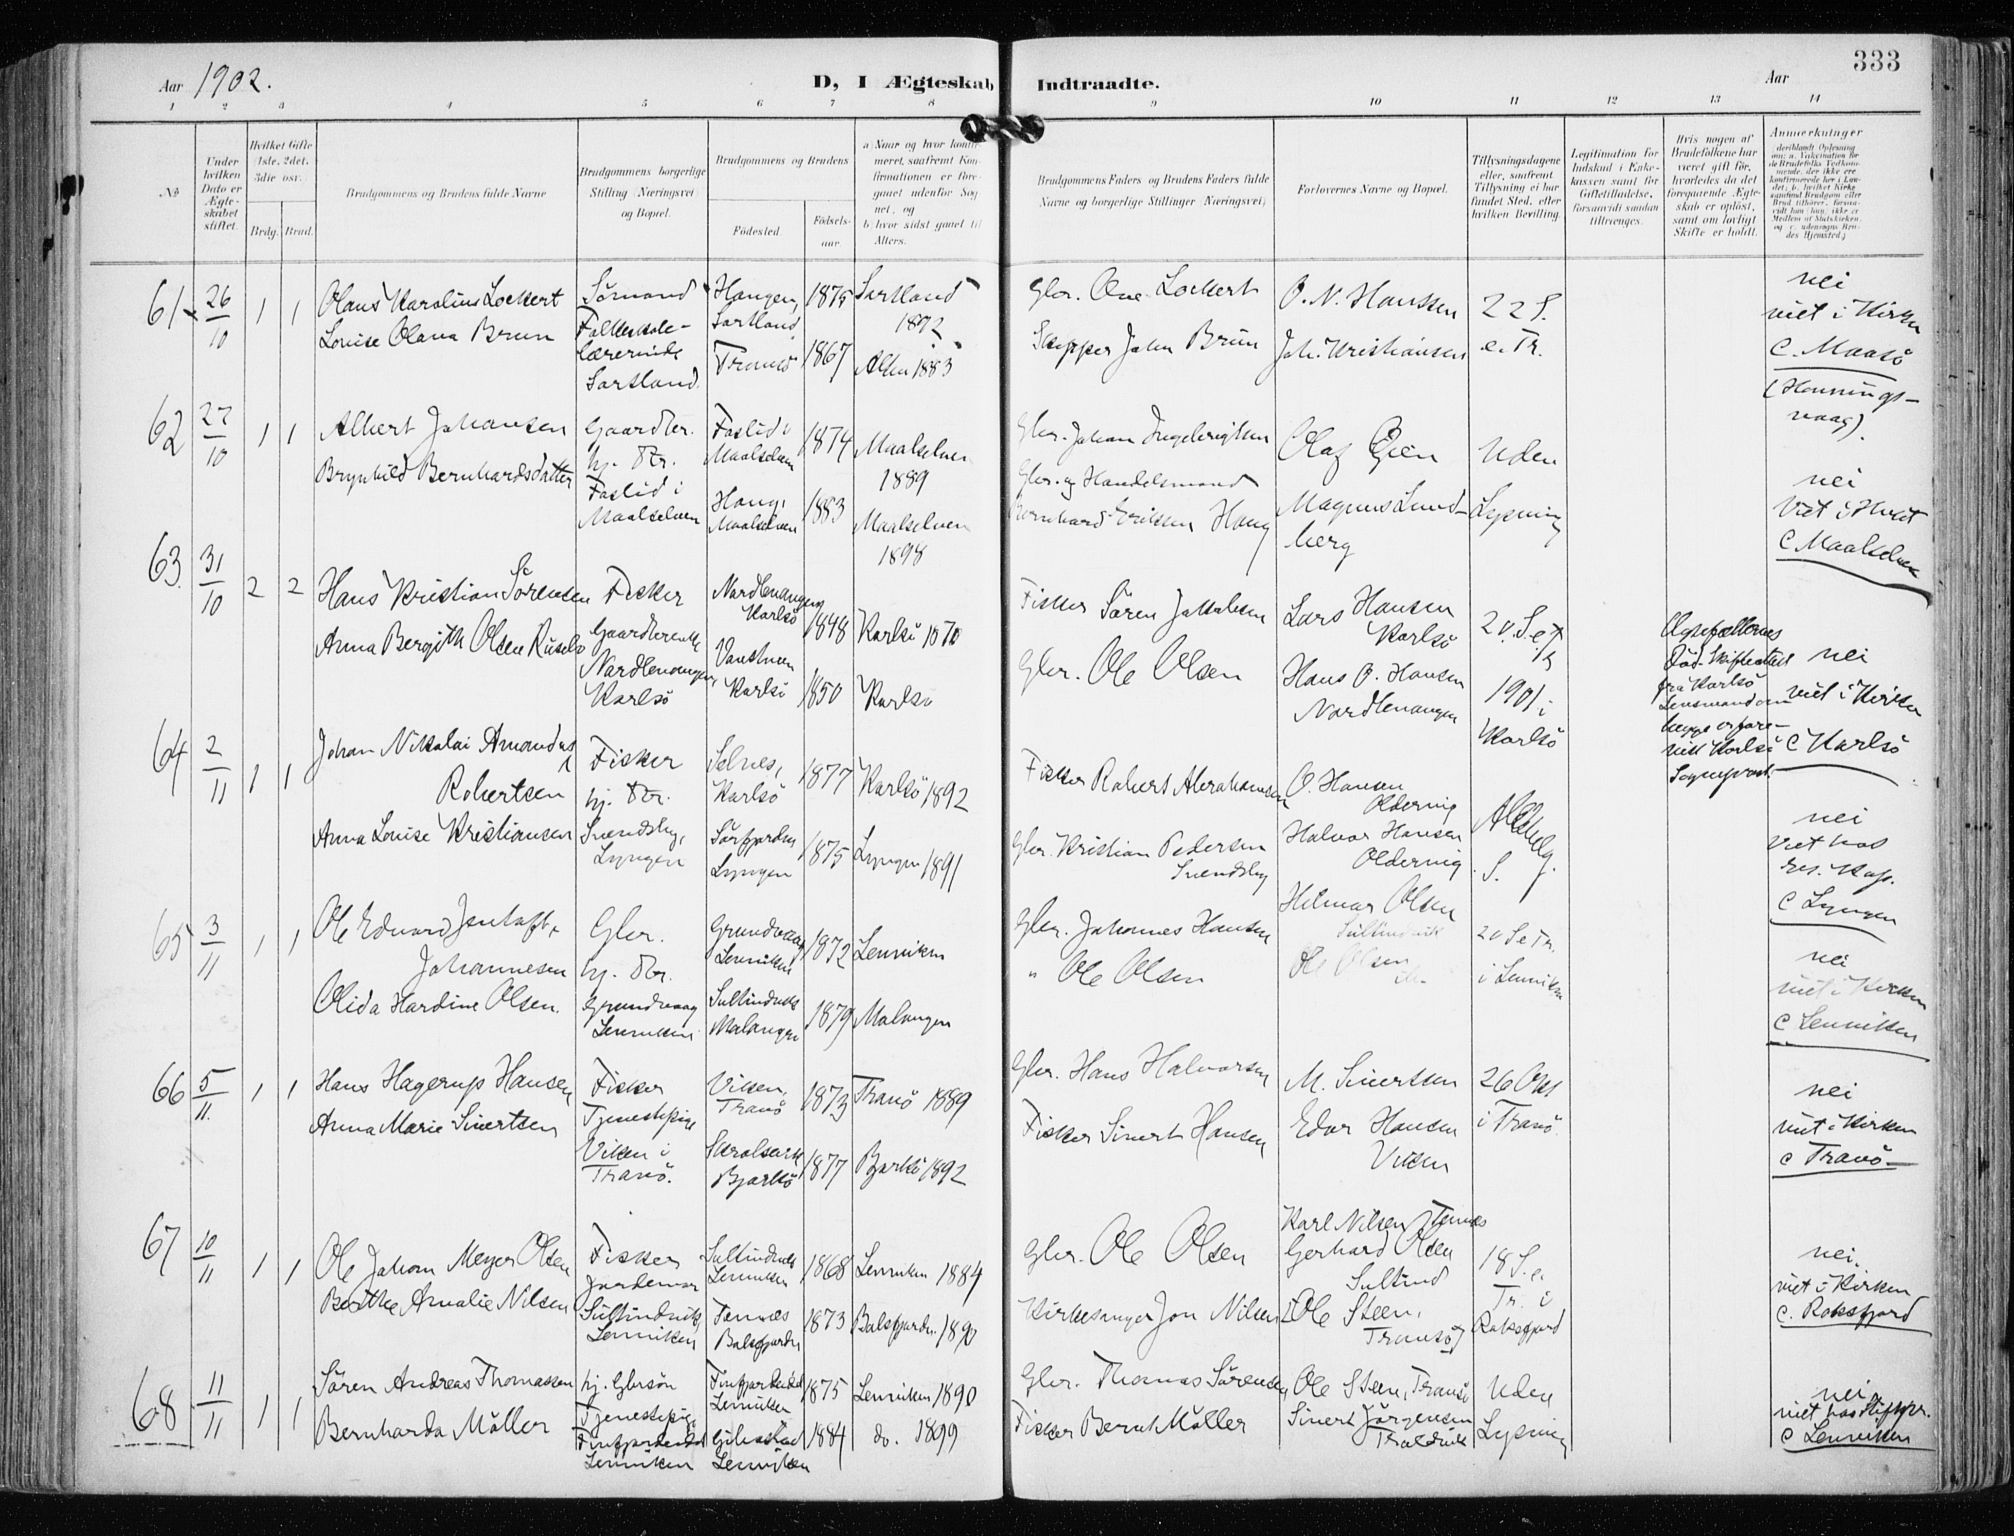 333
Aar 1902.
D, I Ægteskab Indtraadte.
Aar
1 2 3 4 5 6 7 8 9 10 11 12 13 14
No
Under hvilken Dato er Ægteskabet stiftet.
Hvilket Gifte (1ste, 2det, 3die osv.)
Brdg. Brud.
Brudgommens og Brudens fulde Navne
Brudgommens borgerlige Stilling (Næringsvei) og Bopæl.
Brudgommens og Brudens
Fødested.
Fødselsaar.
a) Naar og hvor konfirmeret, saafremt Konfirmationen er foregaaet udenfor Sognet, og
b) hvor sidst gaaet til Alters.
Brudgommens Faders og Brudens Faders fulde Navne og borgerlige Stillinger (Næringsvei)
Forlovernes Navne og Bopæl.
Tillysningsdagene eller, saafremt Tillysning ei har fundet Sted, efter hvilken Bevilling.
Legitimation for Indskud i Enkekassen samt for Giftetilladelse, forsaavidt saadan tiltrænges.
Hvis nogen af Brudefolkene har været gift før, hvorledes da det foregaaende Ægteskab er opløst, samt om lovligt Skifte er holdt.
Anmerkninger
61 26/10 1 1
Olaus Karolius Lockert
Louise Olava Brun
Sømand
Folkeskole-
lærerinde
Sortland.
Haugen,
Sortland
Tromsö
1875
1867
Sortland
1892
Alten 1883
Gbr. Ove Lockert
Skipper John Brun
O. N. Hanssen
Joh. Kristiansen
22 S.
e. Tr.
nei
viet i Kirken
C. Maasö
(Honnings-
vaag).
62 27/10 1 1
Albert Johansen
Brynhild Bernhardsdatter
Gaardbr.
hj. Dtr.
Foslid i
Maalselven
Foslid i
Maalselven
Haug,
Maalselven
1874
1883
Maalselven
1889
Maalselven
1898
Gbr. Johan Ingebrigtsen
Gbr. og Handelsmand
Bernhard Eriksen Haug
Olaf Gjen
Magnus Lund-
berg
Uden
Lysning
nei
Viet i Huset
C Maalselven
63 31/10 2 2
Hans Kristian Sörensen
Anna Bergith Olsen
Fisker
Gaardbrenke
Nordlenangen,
Karlsö
Nordlenangen
Karlsö
Karlsö
1848
1850
Karlsö 1870
Karlsö
Fisker Sören Jakobsen
Gbr. Ole Olsen
Lars Hansen
Karlsö
Hans O. Hansen
Nordlenangen
20. S. e. Tr
1901 i
Karlsö
Ægtefællernes
Död. Skifteattest
fra Karlsö
Lensmand om
begge
Karlsö
Sogneprest
nei
viet i Kirken
C Karlsö
64 2/11 1 1
Johan Nikolai Amandus
Robertsen
Anna Louise Kristiansen
Fisker
hj. Dtr.
Svendsby,
Lyngen
Selnes,
Karlsö
Sörfjorden
Lyngen
1877
1875
Karlsö 1892
Lyngen 1891
Fisker Robert Abrahamsen
Gbr. Kristian Pedersen
Svendsby
O. Hansen
Oldervig
Halvor Hansen
Oldervig
S.
nei
Viet hos
res. Kap.
C Lyngen
65 3/11 1 1
Ole Edvard Jentoft
Johannesen
Olida Hardine Olsen.
Gbr.
hj. Dtr.
Grundvaag
Lenviken
Grundvaag
Lenviken
Sultindvik
Malangen
1872
1879
Lenviken
Malangen
Gbr. Johannes Hansen
" Ole Olsen
Hilmar Olsen
Sultindvik
Ole Olsen
do.
20 S e Tr.
i Lenviken
nei
viet i Kirken
C Lenviken
66 5/11. 1 1
Hans Hagerup Hansen
Anna Marie Sivertsen
Fisker
Tjenestepige
Viken i
Tranö.
Viken,
Tranö
Skrolsvik
Bjarkö
1873
1877
Tranö 1889
Bjarkö 1892
Gbr. Hans Halvorsen
Fisker Sivert Hansen
M. Sivertsen
Edvar Hansen
Viken
26 Okt
i Tranö.
nei
viet i Kirken
C Tranö
67 10/11 1 1
Ole Johan Meyer Olsen
Berthe Amalie Nilsen
Fisker
Jordemor
Sultindvik,
Lenviken
Sultindvik
Lenviken
Tennes
Balsfjorden
1868
1873
Lenviken 1884
Balsfjorden 1890
Gbr. Ole Olsen
Kirkesanger Jon Nilsen
Karl Nilsen Tennes
Gerhard Olsen
Sultind
Ole Steen,
Tromsö
18 S. e.
Tr. i
Raksfjord
nei.
viet i Kirken
C. Raksfjord
68 11/11 1 1
Sören Andreas Thomassen
Bernharda Möller
hj. Gbrsön
Tjenestepige
Finfjordeidet
Lenviken
Finfjordeidet
Lenviken
Gibostad
Lenviken
1875
1884
Lenviken 1890
do. 1899
Gbr. Thomas Sörensen
Fisker Bernt Möller
Ole Steen, Tromsö
Sivert Jörgensen
Traldvik
Uden
Lysning
nei
viet hos Stiftspr.
C Lenviken